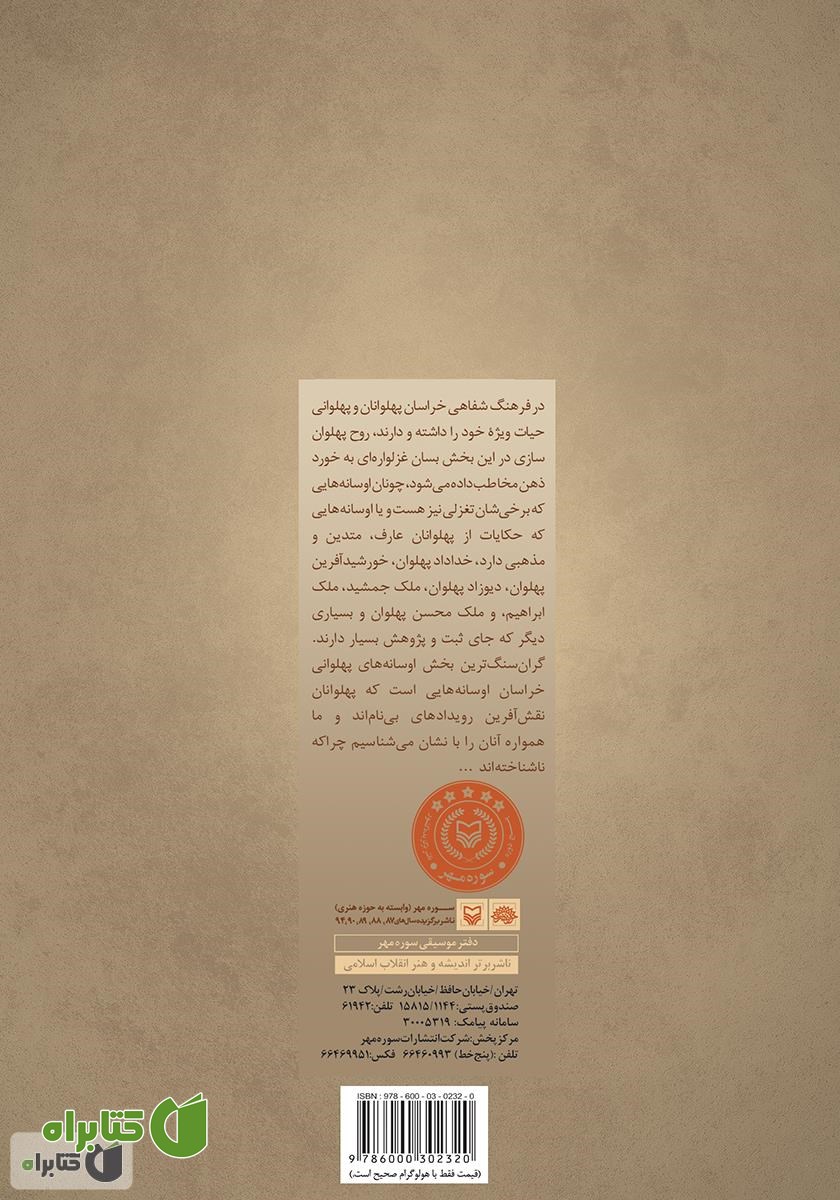 در فرهنگ شفاهی خراسان پهلوانان و پهلوانی
حیات ویژهٔ خود را داشته و دارند، روح پهلوان
سازی در این بخش بسان غزلواره‌ای به خورد
ذهن مخاطب داده می‌شود، چونان اوسانه‌هایی
که برخی‌شان تغزلی نیز هست و یا اوسانه‌هایی
که حکایات از پهلوانان عارف، متدین و
مذهبی دارد، خداداد پهلوان، خورشیدآفرین
پهلوان، دیوزاد پهلوان، ملک جمشید، ملک
ابراهیم، و ملک محسن پهلوان و بسیاری
دیگر که جای ثبت و پژوهش بسیار دارند.
گران‌سنگ‌ترین بخش اوسانه‌های پهلوانی
خراسان اوسانه‌هایی است که پهلوانان
نقش‌آفرین رویدادهای بی‌نام‌اند و ما
همواره آنان را با نشان می‌شناسیم چراکه
ناشناخته‌اند ...
سوره مهر
سوره مهر (وابسته به حوزه هنری)
ناشر برگزیده سال‌های ۸۷، ۸۸، ۸۹، ۹۰، ۹۴
دفتر موسیقی سوره مهر
ناشر برتر اندیشه و هنر انقلاب اسلامی
تهران/خیابان حافظ/خیابان رشت/پلاک ۲۳
صندوق پستی: ۱۵۸۱۵/۱۱۴۴ تلفن: ۶۱۹۴۲
سامانه پیامک: ۳۰۰۰۵۳۱۹
مرکز پخش: شرکت انتشارات سوره مهر
تلفن: (پنج خط) ۶۶۴۶۰۹۹۳ فکس: ۶۶۴۶۹۹۵۱
ISBN : 978 - 600 - 03 - 0232 - 0
9 786000 302320
(قیمت فقط با هولوگرام صحیح است.)
کتابراه
کتابراه